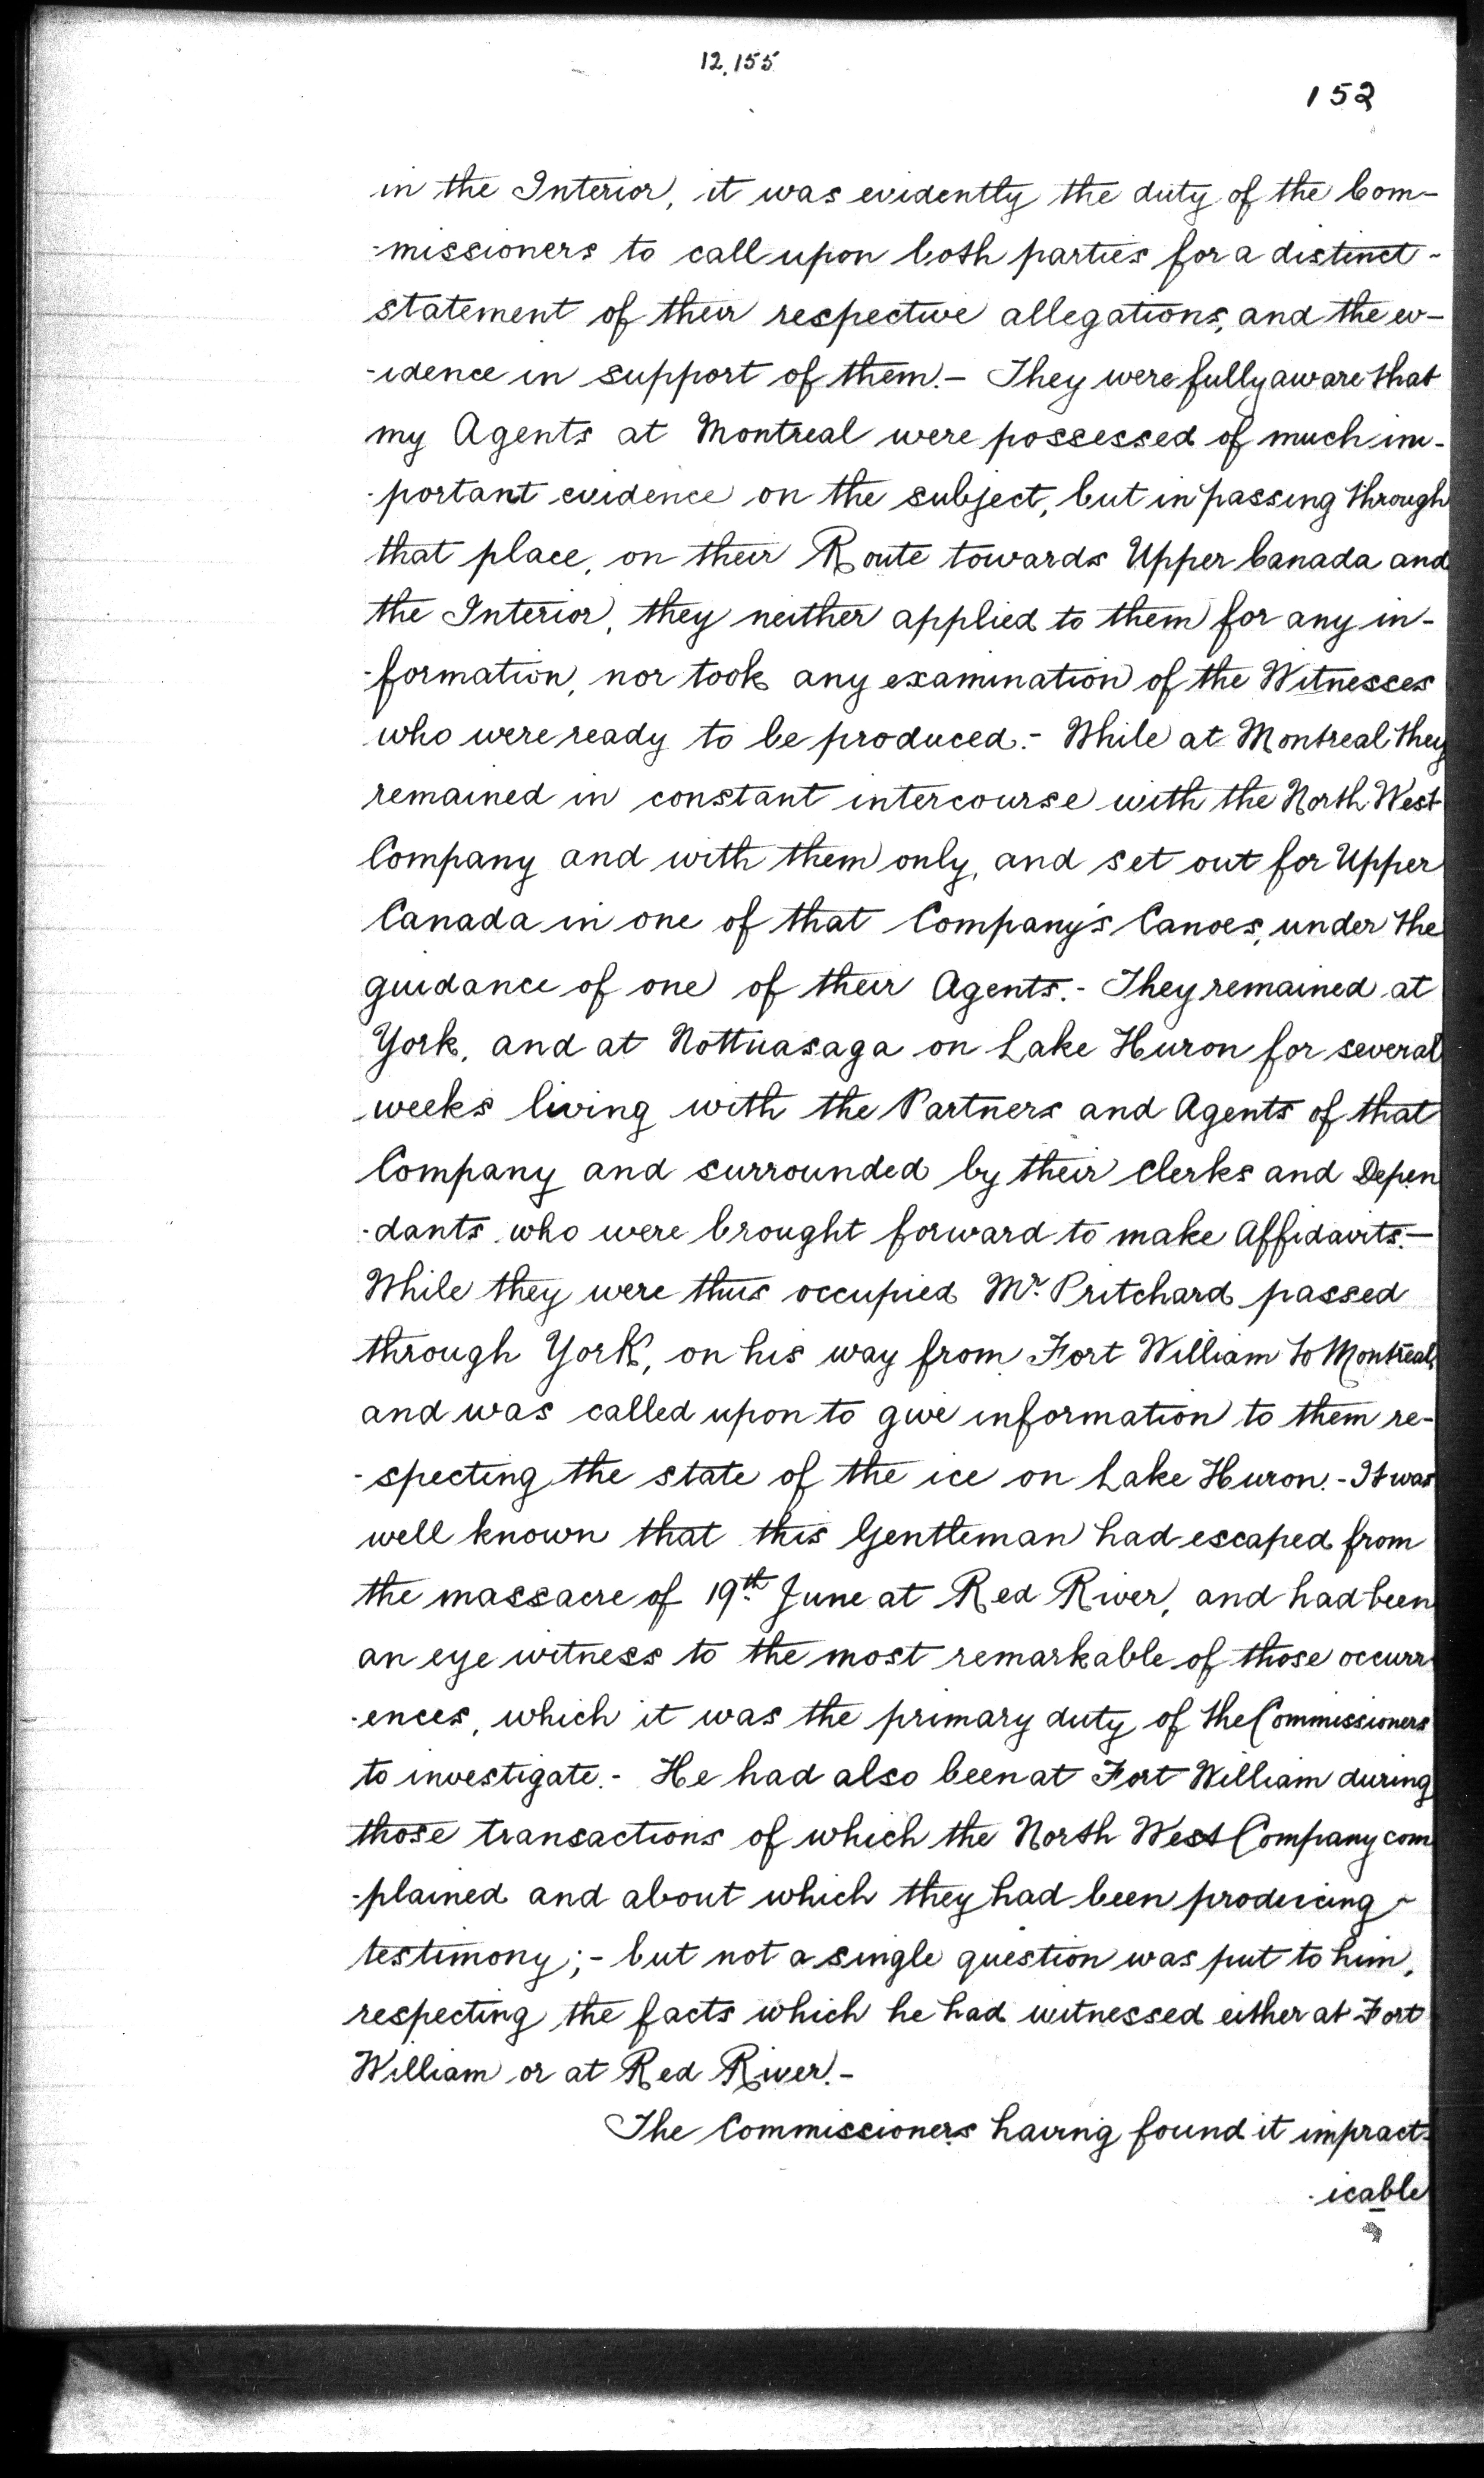 12,155
152
in the Interior, it was evidently the duty of the Com-
-missioners to call upon both parties for a distinct -
statement of their respective allegations, and the ev-
-idence in support of them. - They were fully aware that
my Agents at Montreal were possessed of much im-
-portant evidence on the subject, but in passing through
that place, on their Route towards Upper Canada and
the Interior, they neither applied to them for any in-
-formation, nor took any examination of the Witnesses
who were ready to be produced. - While at Montreal they
remained in constant intercourse with the North West
Company and with them only, and set out for Upper
Canada in one of that Company's Canoes, under the
guidance of one of their Agents. - They remained at
York, and at Nottuasaga on Lake Huron for several
weeks living with the Partners and Agents of that
Company and surrounded by their Clerks and Depen
-dants who were brought forward to make Affidavits. -
While they were thus occupied Mr. Pritchard passed
through York, on his way from Fort William to Montreal,
and was called upon to give information to them re-
-specting the state of the ice on Lake Huron. - It was
well known that this Gentleman had escaped from
the massacre of 19th June at Red River, and had been
an eye witness to the most remarkable of those occurr
-ences, which it was the primary duty of the Commissioners
to investigate. - He had also been at Fort William during
those transactions of which the North West Company com
-plained and about which they had been producing ~
testimony; - but not a single question was put to him,
respecting the facts which he had witnessed either at Fort
William or at Red River. -
The Commissioners having found it impract-
-icable